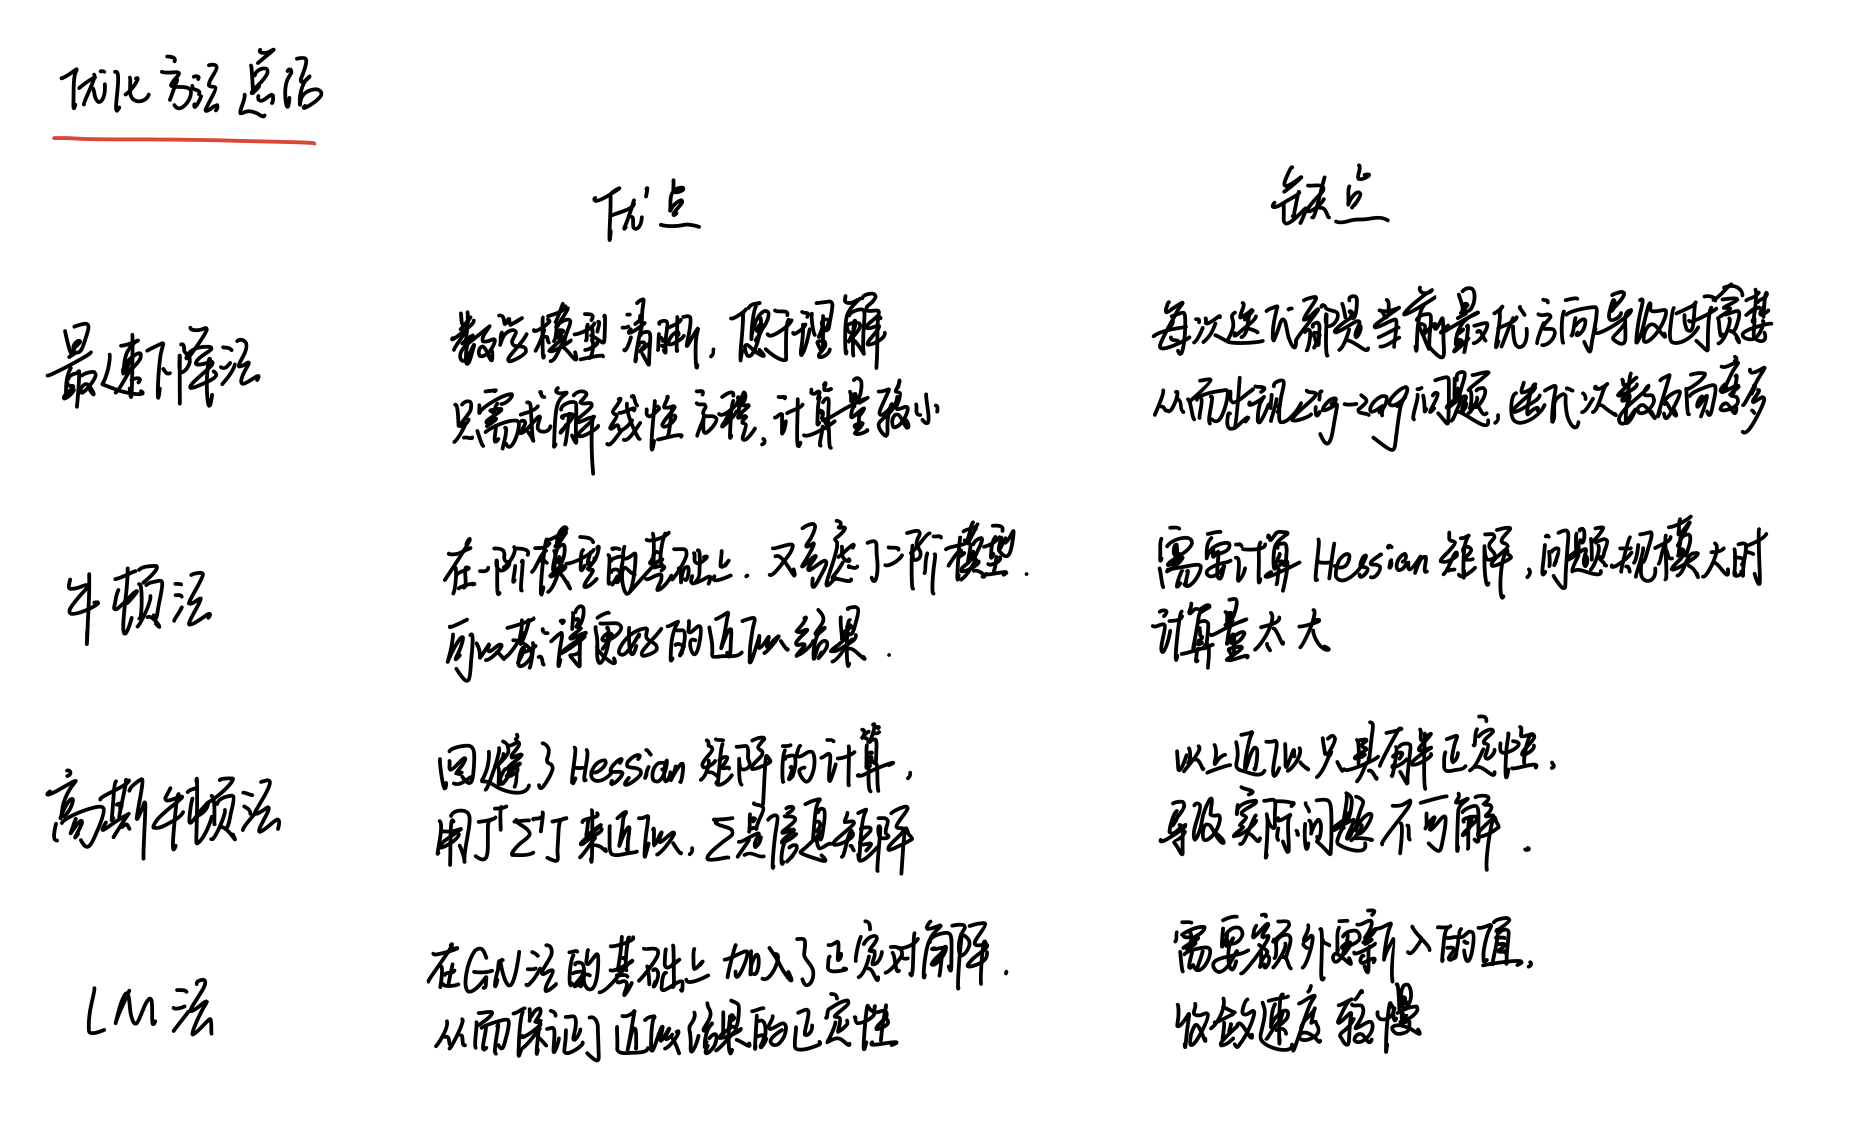 优化方法总结
优点 缺点
最速下降法
数学模型清晰，便于理解
只需求解线性方程，计算量较小
每次迭代都是当前最优方向导致过于贪婪
从而出现zig-zag问题，迭代次数反而变多
牛顿法
在一阶模型的基础上．又考虑了二阶模型．
可以获得更好的近似结果．
需要计算Hessian矩阵，问题规模大时
计算量太大
高斯牛顿法
回避了Hessian矩阵的计算，
用JᵀΣ⁻¹J来近似，Σ是信息矩阵
以上近似只具有半正定性，
导致实际问题不可解．
LM法
在GN法的基础上加入了正定对角阵．
从而保证了近似结果的正定性
需要额外更新λ的值，
收敛速度较慢